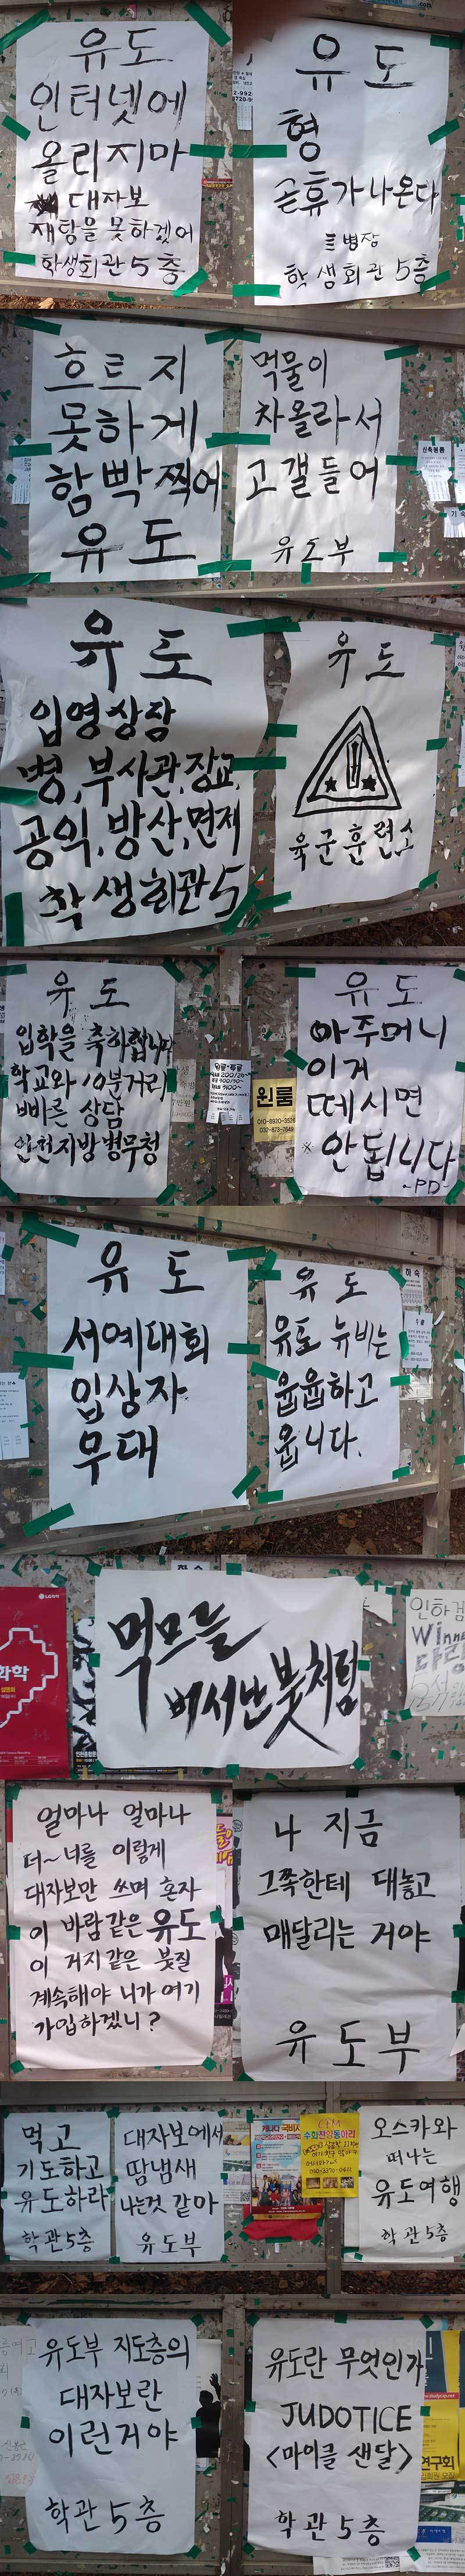 유도
인터넷에
올리지마
대자보
재탕을 못하겠어
학생회관 5층
유도
형
곧휴가나온다
병장
학생회관 5층
흐트지
못하게
함빡찍어
유도
먹물이
차올라서
고갤들어
유도부
유도
입영상담
병,부사관,장교,
공익,방산,면제
학생회관5
유도
육군훈련소
유도
입학을 축하합니다
학교와 10분거리
빠른 상담
인천지방병무청
원룸
유도
아주머니
이거
떼시면
※ 안됩니다
-PD-
유도
서예대회
입상자
우대
유도
유도 뉴비는
윱윱하고
웁니다.
하숙
LG화학
화학
먹므를
벼서난붓처럼
인하검
Winne
다랑
얼마나 얼마나
더~너를 이렇게
대자보만 쓰며 혼자
이 바람같은 유도
이 거지같은 붓질
계속해야 니가 여기
가입하겠니?
나 지금
그쪽한테 대놓고
매달리는 거야
유도부
먹고
기도하고
유도하라
학관5층
대자보에서
땀냄새
나는것 같아
유도부
캐나다 국비
수화찬양동아리
오스카와
떠나는
유도여행
학관5층
유도부 지도층의
대자보란
이런거야
학관5층
유도란 무엇인가
JUDOTICE
<마이클 샌달>
학관5층
연구회